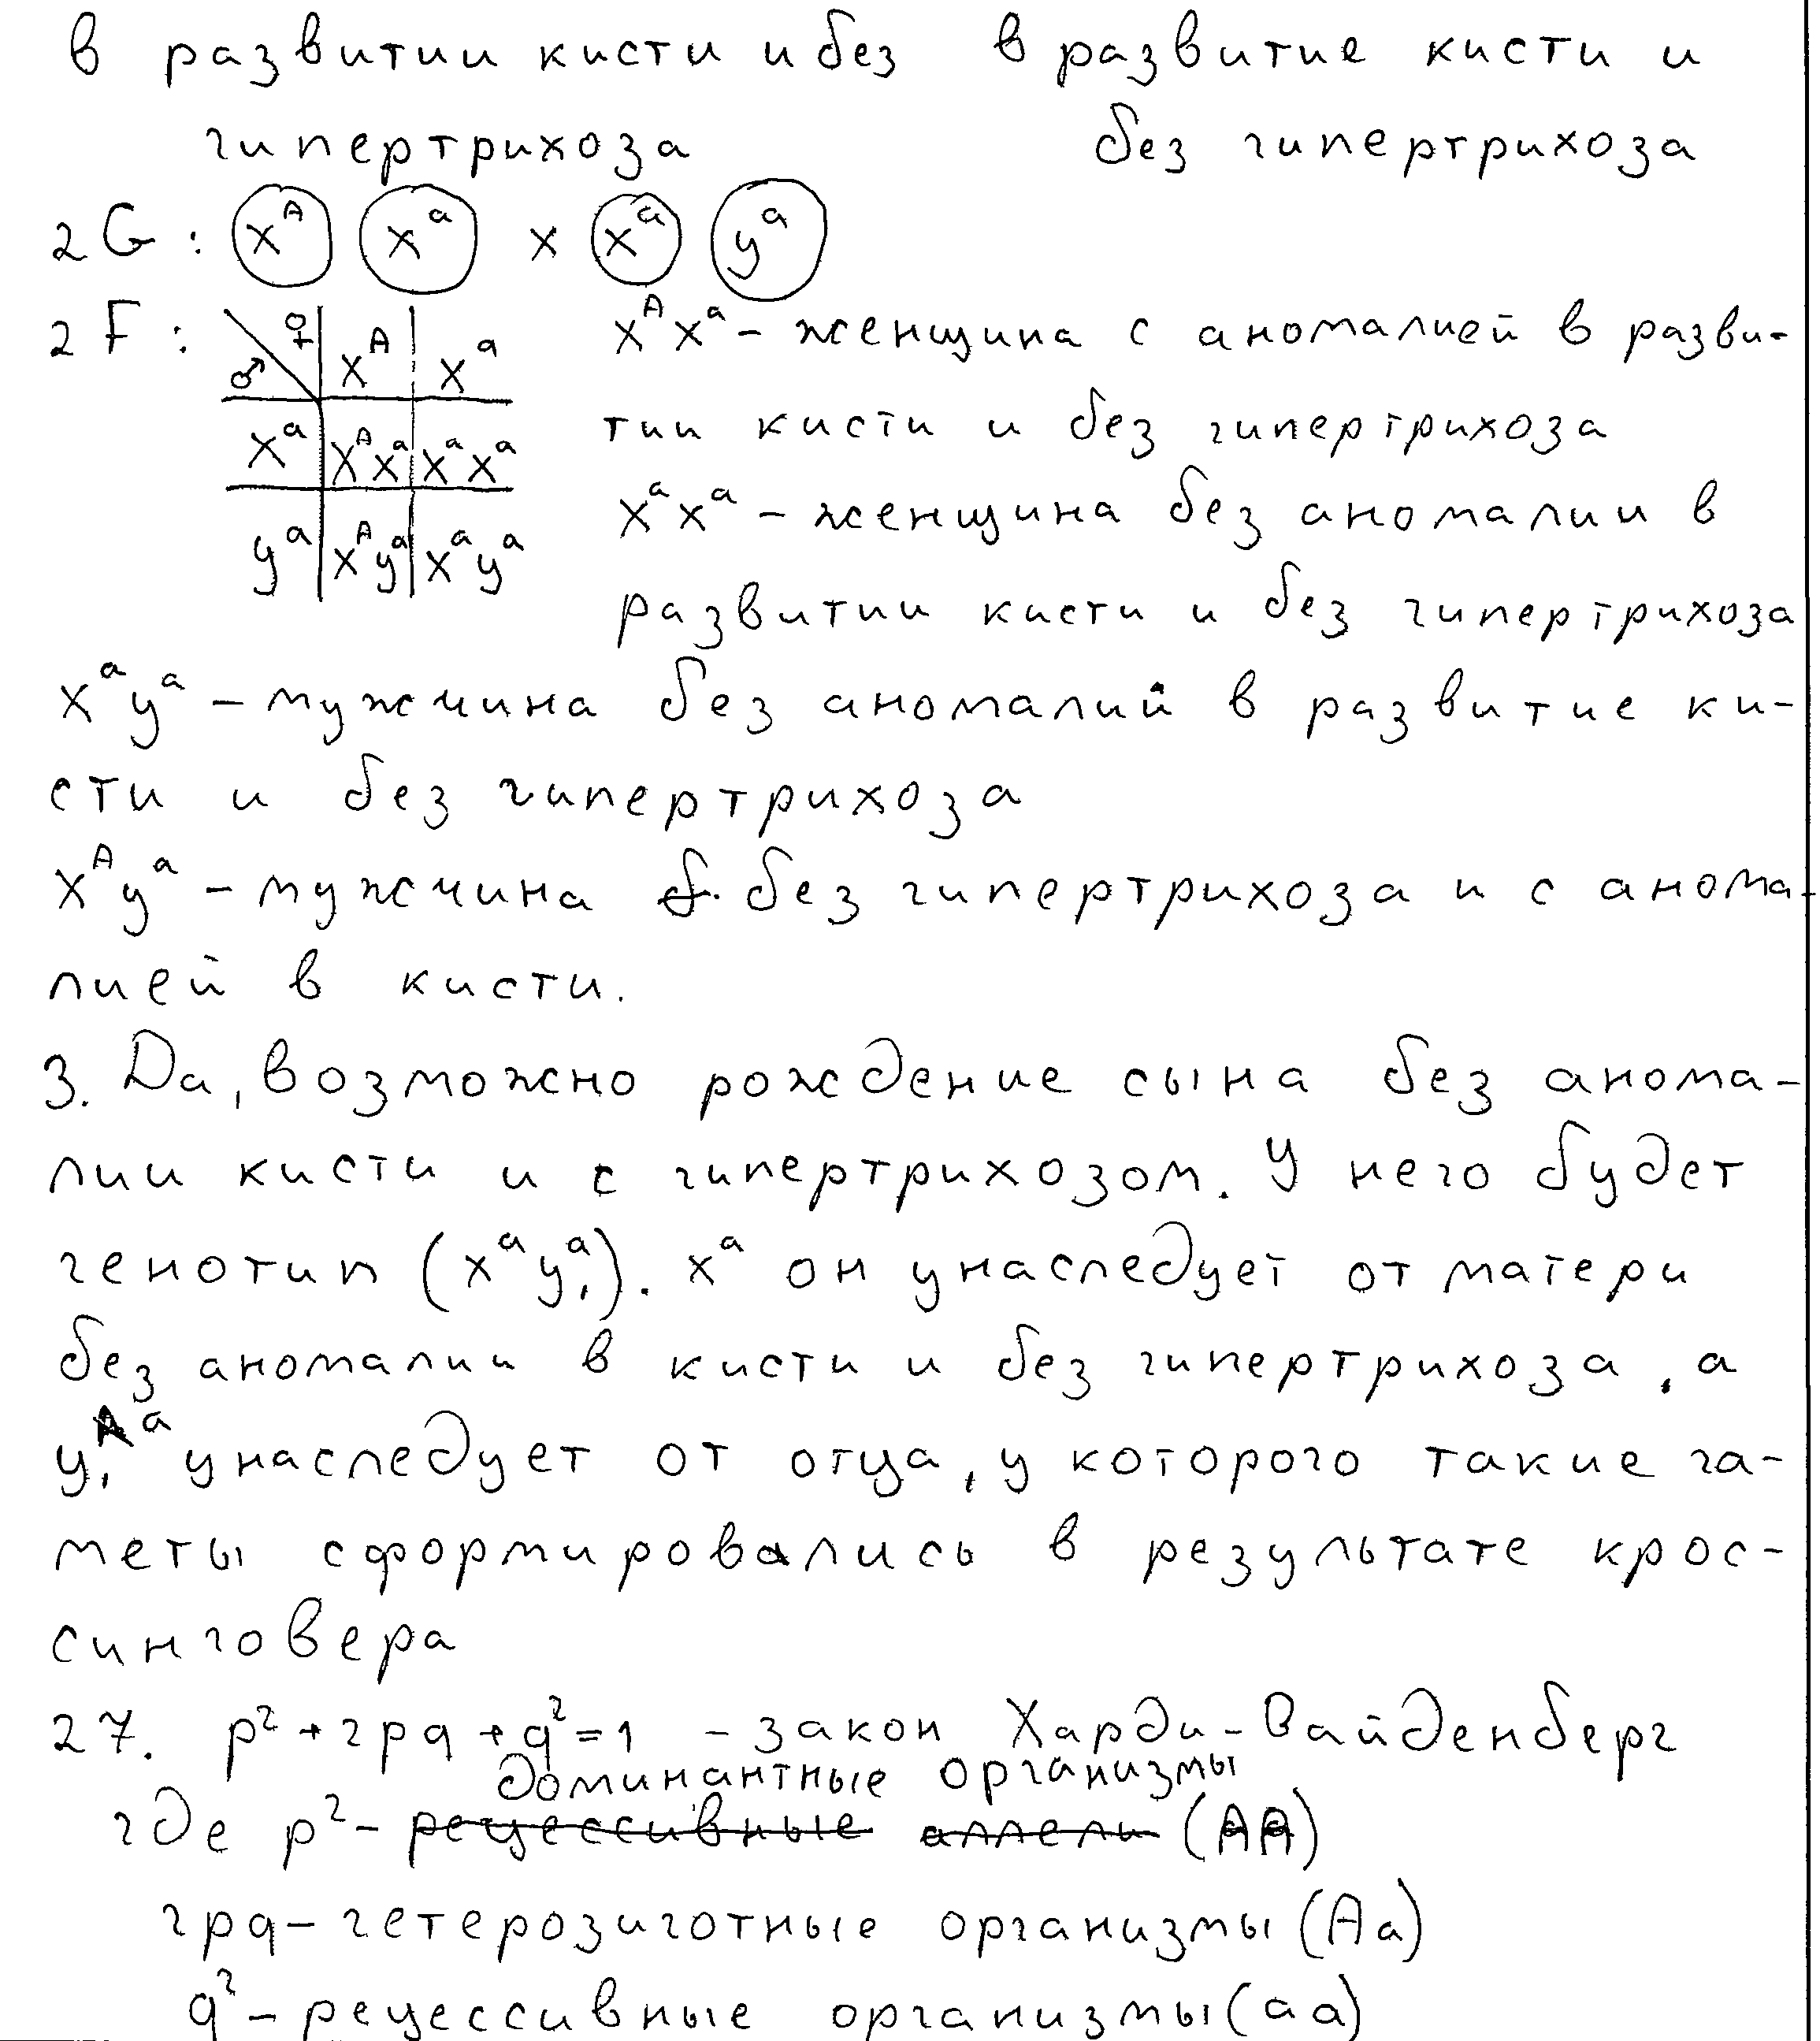 в развитии кисти и без в развитие кисти и
гипертрихоза без гипертрихоза
2 G : X^A X^a × X^a y^a
2 F : ♀ ♂ X^A X^a
X^a X^A X^a X^a X^a
y^a X^A y^a X^a y^a
X^A X^a – женщина с аномалией в разви-
тии кисти и без гипертрихоза
X^a X^a – женщина без аномалии в
развитии кисти и без гипертрихоза
X^a y^a – мужчина без аномалий в развитие ки-
сти и без гипертрихоза
X^A y^a – мужчина без гипертрихоза и с анома-
лией в кисти.
3. Да, возможно рождение сына без анома-
лии кисти и с гипертрихозом. У него будет
генотип (X^a y₁^a). X^a он унаследует от матери
без аномалии в кисти и без гипертрихоза, а
y₁^a унаследует от отца, у которого такие га-
меты сформировались в результате крос-
синговера
27. p²+2pq+q²=1 – закон Харди-Вайденберг
доминантные организмы
где p² – рецессивные аллели (AA)
2pq – гетерозиготные организмы (Aa)
q² – рецессивные организмы (aa)